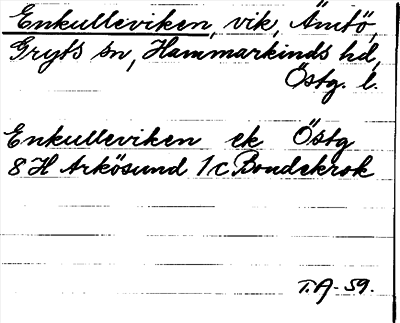 Enkulleviken, vik, Ämtö,
Gryts sn, Hammarkinds hd,
Östg. l.
Enkulleviken ek Östg
8 H Arkösund 1c Bondekrok
T.A-59.